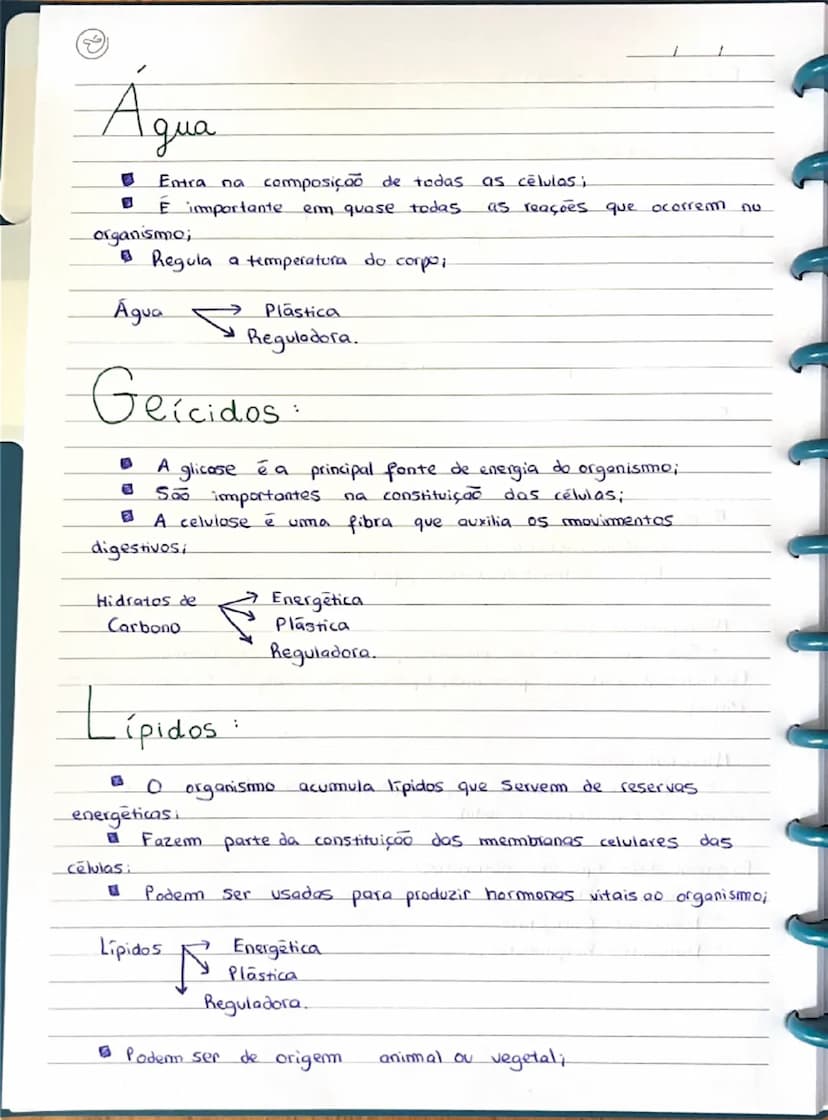 Água
Entra na composição de todas as células;
É importante em quase todas as reações que ocorrem no
organismo;
Regula a temperatura do corpo;
Água → Plástica
Reguladora.
Geícidos:
A glicose é a principal fonte de energia do organismo;
São importantes na constituição das células;
A celulose é uma fibra que auxilia os movimentos
digestivos;
Hidratos de → Energética
Carbono → Plástica
Reguladora.
Lípidos:
O organismo acumula lípidos que servem de reservas
energéticas;
Fazem parte da constituição das membranas celulares das
células;
Podem ser usados para produzir hormonas vitais ao organismo;
Lípidos → Energética
Plástica
Reguladora.
Podem ser de origem animal ou vegetal;